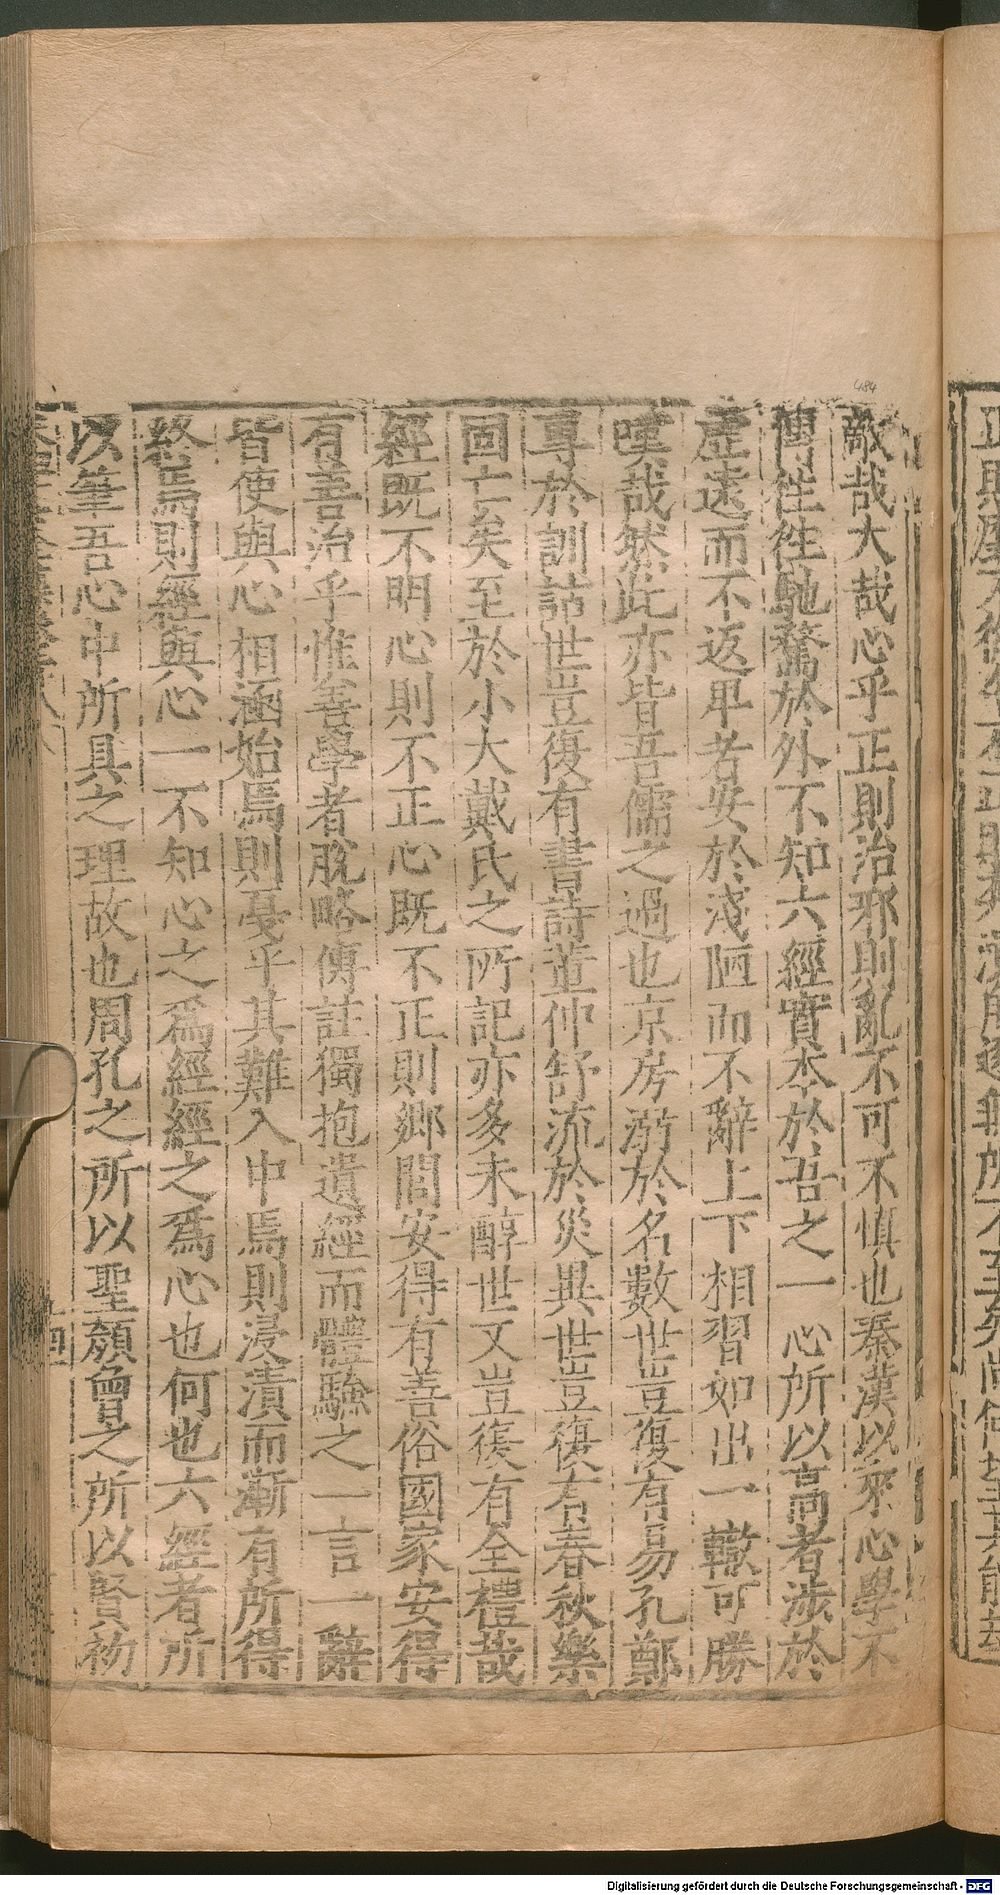 敵哉大哉心乎正則治邪則亂不可不慎也秦漢以來心學不
傳往往馳騖於外不知六經實本於吾之一心所以高者涉於
虛遠而不返卑者安於淺陋而不辭上下相習如出一轍可勝
嘆哉然此亦皆吾儒之過也京房溺於名數世豈復有易孔鄭
專於訓詁世豈復有書詩董仲舒流於災異世豈復有春秋樂
固亡矣至於小大戴氏之所記亦多未醇世又豈復有全禮哉
經既不明心則不正心既不正則鄉閭安得有善俗國家安得
有善治乎惟善學者脫略傳註獨抱遺經而體驗之一言一辭
皆使與心相涵始焉則戞乎其難入中焉則浸漬而漸有所得
終焉則經與心一不知心之為經經之為心也何也六經者所
以筆吾心中所具之理故也周孔之所以聖顏曾之所以賢初
484
Digitalisierung gefördert durch die Deutsche Forschungsgemeinschaft - DFG